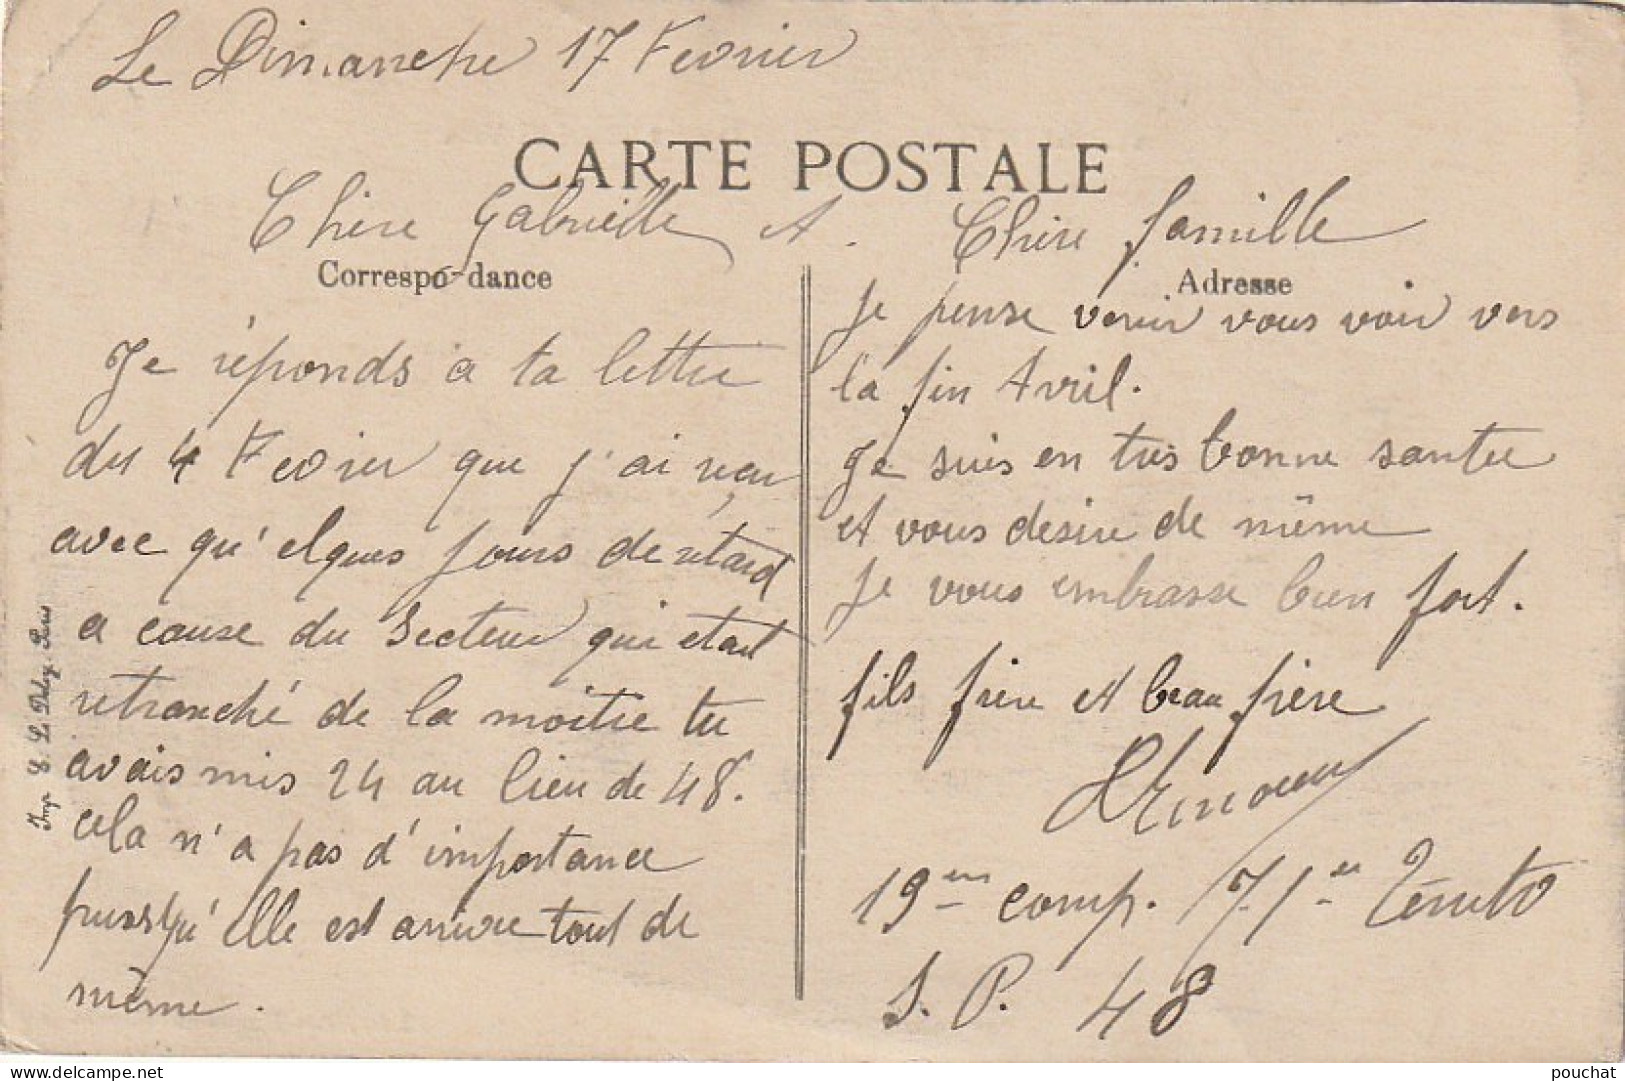 Le Dimanche 17 Fevrier
CARTE POSTALE
Chère Gabrielle et Chère famille
Correspondance
Adresse
Je réponds a ta lettre
du 4 Fevrier que j'ai reçu
avec qu'elques jours de retard
a cause du Secteur qui etait
retranché de la moitie tu
avais mis 24 au lieu de 48.
cela n'a pas d'importance
puissqu'elle est arrivée tout de
même.
Je pense venir vous voir vers
la fin Avril.
Je suis en très bonne santée
et vous desire de même
Je vous embrasse bien fort.
fils frère et beau frère
19em comp. 71e Territo
S. P. 48
Imp. E. Le Deley, Paris
pouchat